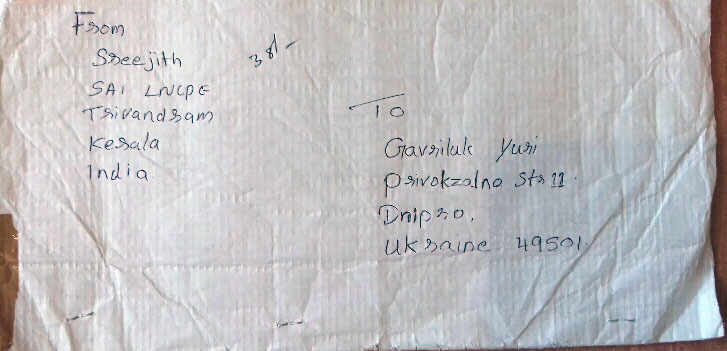 From
Sreejith
SAI LNCPE
Trivandram
Kerala
India
To
Gavriluk Yuri
Privokzalna Str 11.
Dnipro,
Ukraine 49501.